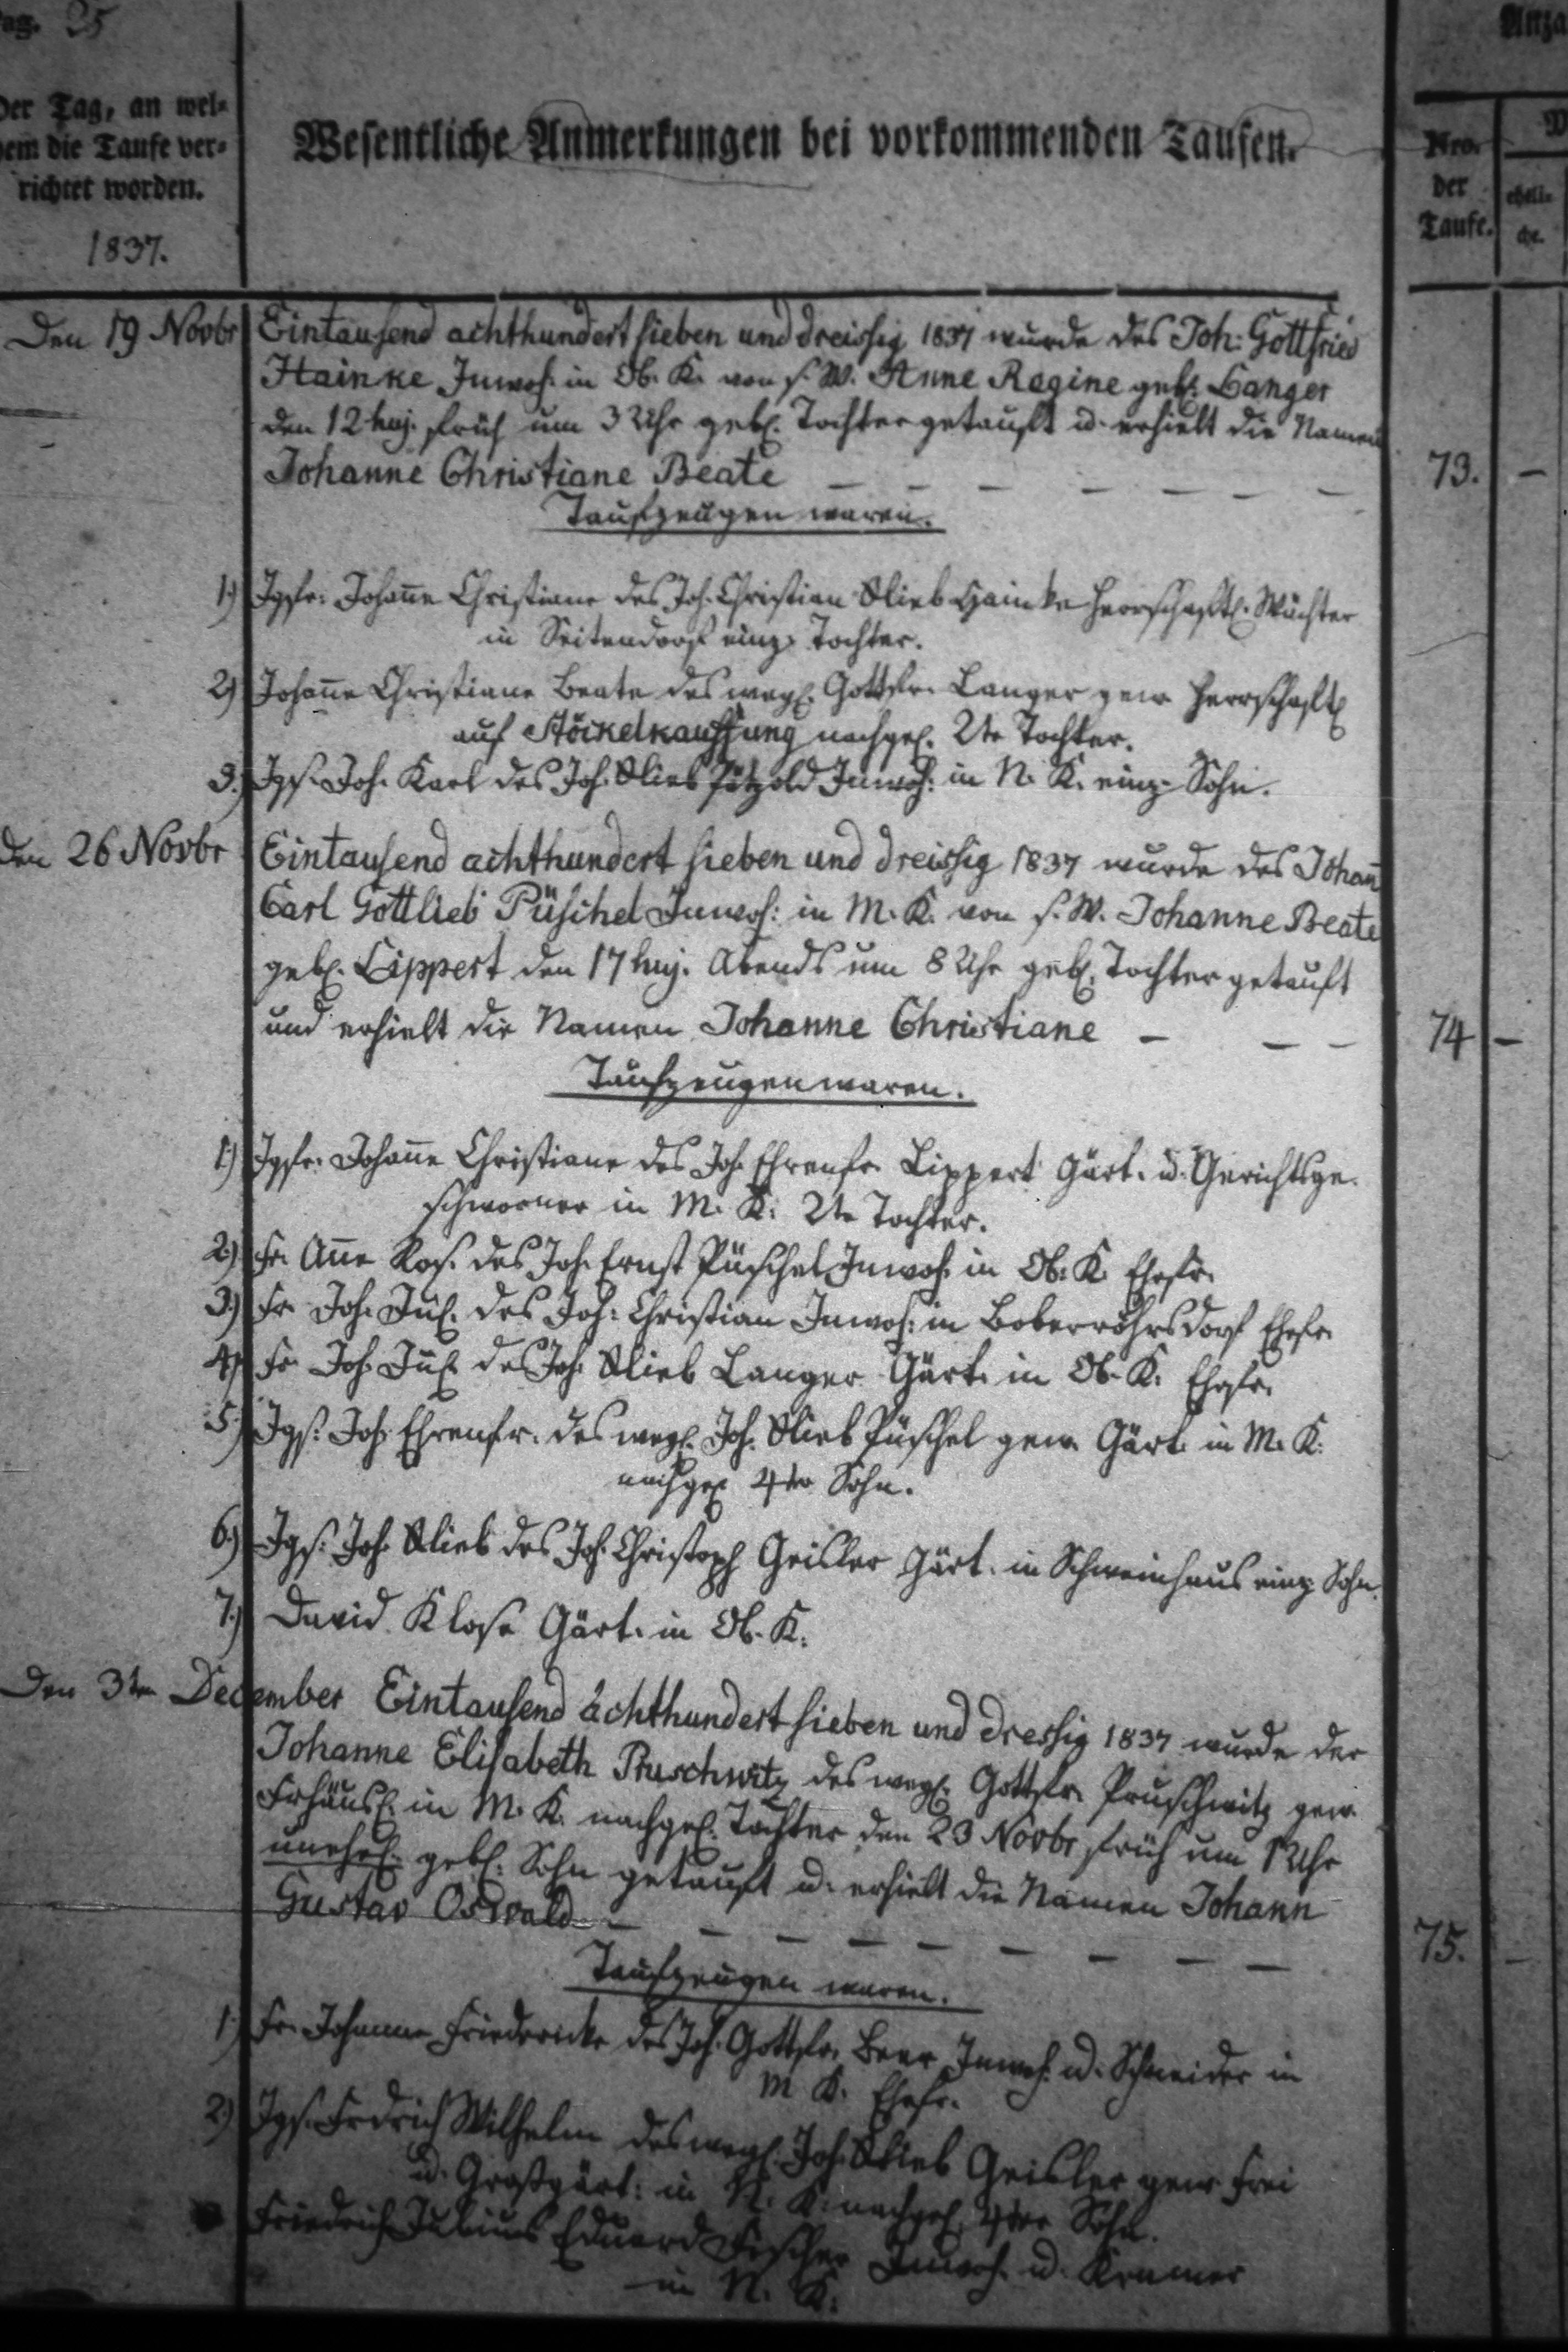 Pag. 25
Der Tag, an wel-
chem die Taufe ver-
richtet worden.
1837.
Wesentliche Anmerkungen bei vorkommenden Taufen.
Nro.
der
Taufe.
eheli-
che.
Den 19 Novbr Eintausend achthundert sieben und dreissig 1837 wurde des Joh: Gottfried
Hainke Inwoh: in Ob. K. von s. W. Anne Regine geb. Langer
den 12 huj. früh um 3 Uhr geb. Tochter getauft u. erhielt die Namen
Johanne Christiane Beate — — — — — — — 73. —
Taufzeugen waren.
1.) Jgfr: Johañe Christiane des Joh. Christian Glieb Hainke herrschaftl: Wächter
in Seitendorf einz. Tochter.
2) Johañe Christiane Beate des wegl. Gottfr. Langer gew. herrschaftl
auf Stöckelkauffung nachgel. 2te Tochter.
3.) Jgs. Joh. Karl des Joh. Glieb Pätzold Inwoh: in N. K. einz. Sohn.
Den 26 Novbr Eintausend achthundert sieben und dreissig 1837 wurde des Johañ
Carl Gottlieb Püschel Inwoh: in M. K. von s. W. Johanne Beate
geb. Lippert den 17 huj. Abends um 8 Uhr geb. Tochter getauft
und erhielt die Namen Johanne Christiane — — — 74 —
Taufzeugen waren.
1.) Jgfr. Johañe Christiane des Joh. Ehrenfr. Lippert Gärt. u. Gerichtsge-
schworner in M. K. 2te Tochter.
2.) Fr. Añe Ros. des Joh. Ernst Püschel Inwoh. in Ob. K. Ehefr.
3.) Fr. Joh. Jul. des Joh: Christian Inwoh: in Boberröhrsdorf Ehefr.
4.) Fr. Joh. Jul. des Joh. Glieb Langer Gärt. in Ob. K. Ehefr.
5.) Jgs. Joh. Ehrenfr. des wegl. Joh. Glieb Püschel gew. Gärt. in M. K.
nachgel. 4ter Sohn.
6.) Jgs. Joh. Glieb des Joh. Christoph Geisler Gärt. in Schweinhaus einz. Sohn.
7.) David Klose Gärt. in Ob. K.
Den 3ten December Eintausend achthundert sieben und dressig 1837 wurde der
Johanne Elisabeth Pruschwitz des wegl. Gottfr. Pruschwitz gew.
Frhäusl. in M. K. nachgel. Tochter den 23 Novbr früh um 1 Uhr
unehel. geb. Sohn getauft u. erhielt die Namen Johann
Gustav Oswald — — — — — — — — — 75. —
Taufzeugen waren.
1.) Fr. Johanne Friedericke des Joh. Gottfr. Beer Inwoh. u. Schneider in
M. K. Ehefr.
2.) Jgs. Frdrich Wilhelm des wegl. Joh. Glieb Geisler gew. Frei
u. Großgärt: in N. K. nachgel. 4ter Sohn.
Friedrich Julius Eduard Fischer Inwoh. u. Kramer
in N. K.